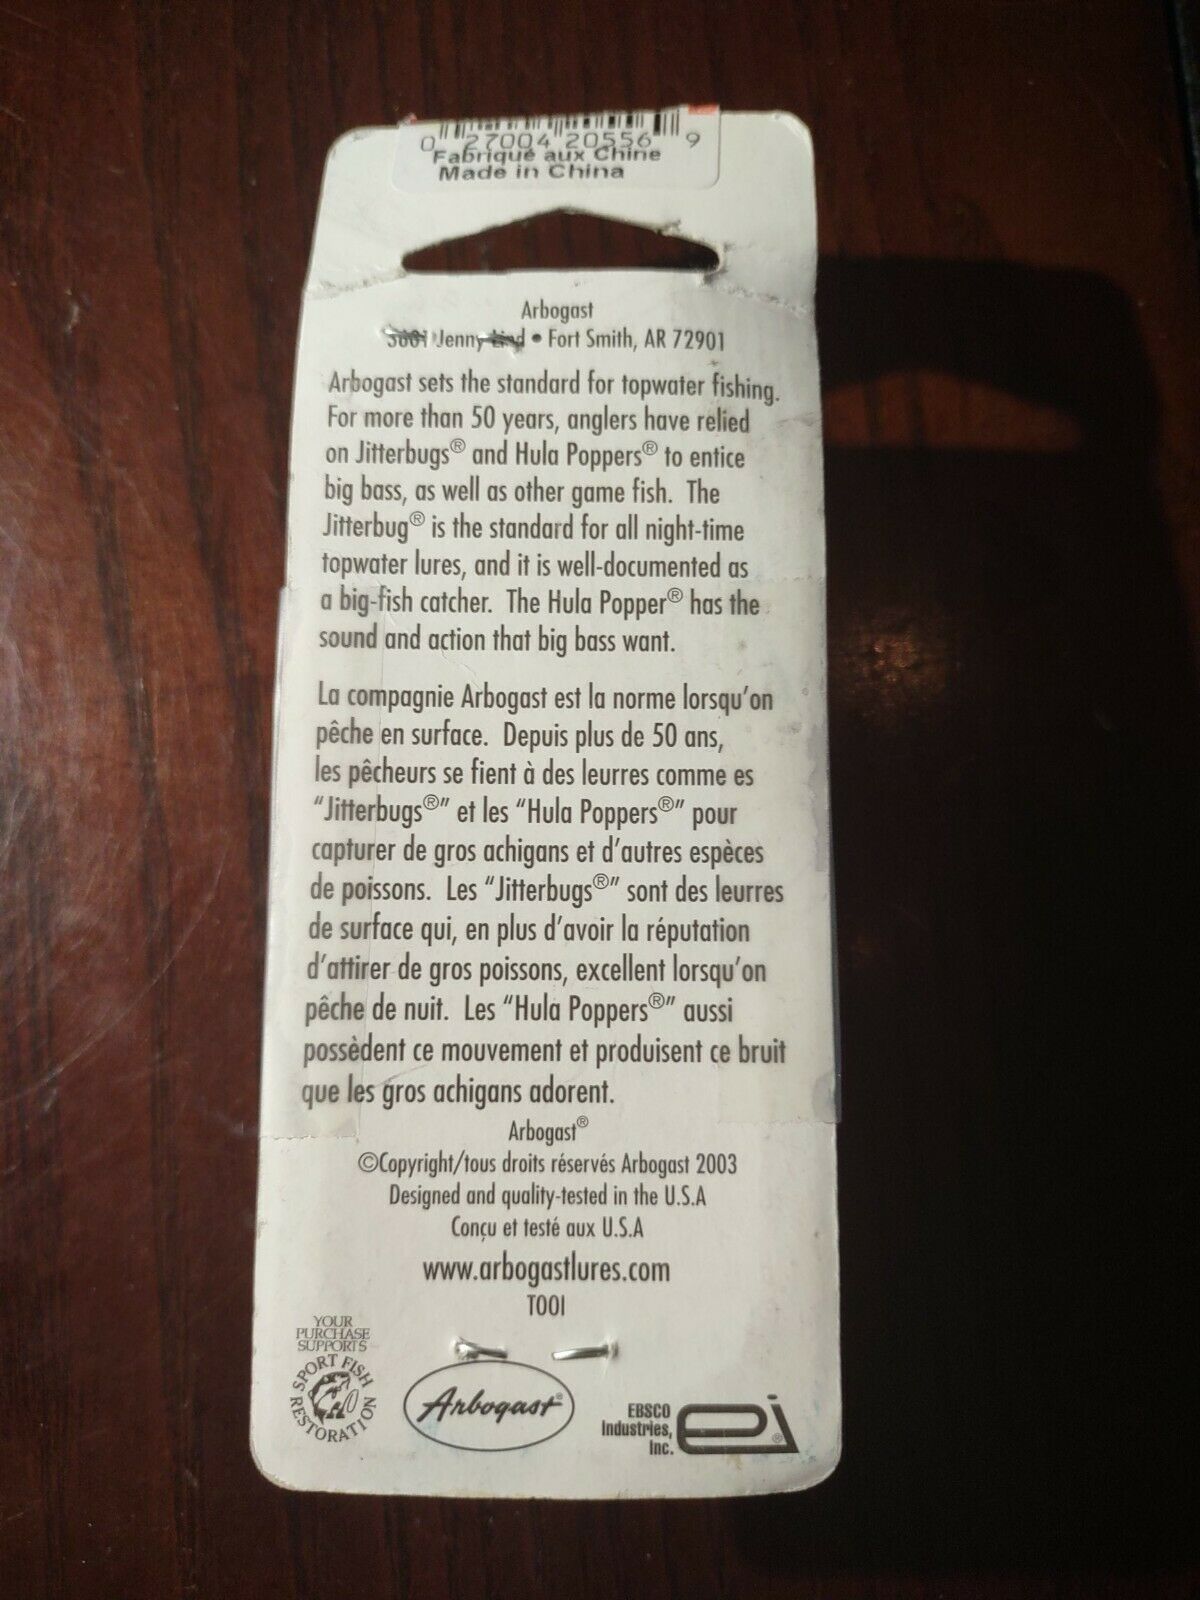 0 27004 20556 9
Fabriqué aux Chine
Made in China
Arbogast
3601 Jenny Lind • Fort Smith, AR 72901
Arbogast sets the standard for topwater fishing.
For more than 50 years, anglers have relied
on Jitterbugs® and Hula Poppers® to entice
big bass, as well as other game fish. The
Jitterbug® is the standard for all night-time
topwater lures, and it is well-documented as
a big-fish catcher. The Hula Popper® has the
sound and action that big bass want.
La compagnie Arbogast est la norme lorsqu'on
pêche en surface. Depuis plus de 50 ans,
les pêcheurs se fient à des leurres comme es
"Jitterbugs®" et les "Hula Poppers®" pour
capturer de gros achigans et d'autres espèces
de poissons. Les "Jitterbugs®" sont des leurres
de surface qui, en plus d'avoir la réputation
d'attirer de gros poissons, excellent lorsqu'on
pêche de nuit. Les "Hula Poppers®" aussi
possèdent ce mouvement et produisent ce bruit
que les gros achigans adorent.
Arbogast®
©Copyright/tous droits réservés Arbogast 2003
Designed and quality-tested in the U.S.A
Conçu et testé aux U.S.A
www.arbogastlures.com
T001
YOUR
PURCHASE
SUPPORTS
SPORT FISH
RESTORATION
Arbogast®
EBSCO
Industries,
Inc.
ei®